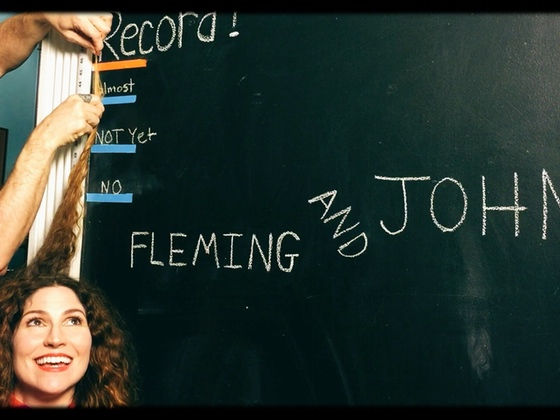 Record!
almost
NOT Yet
NO
FLEMING
AND
JOHN